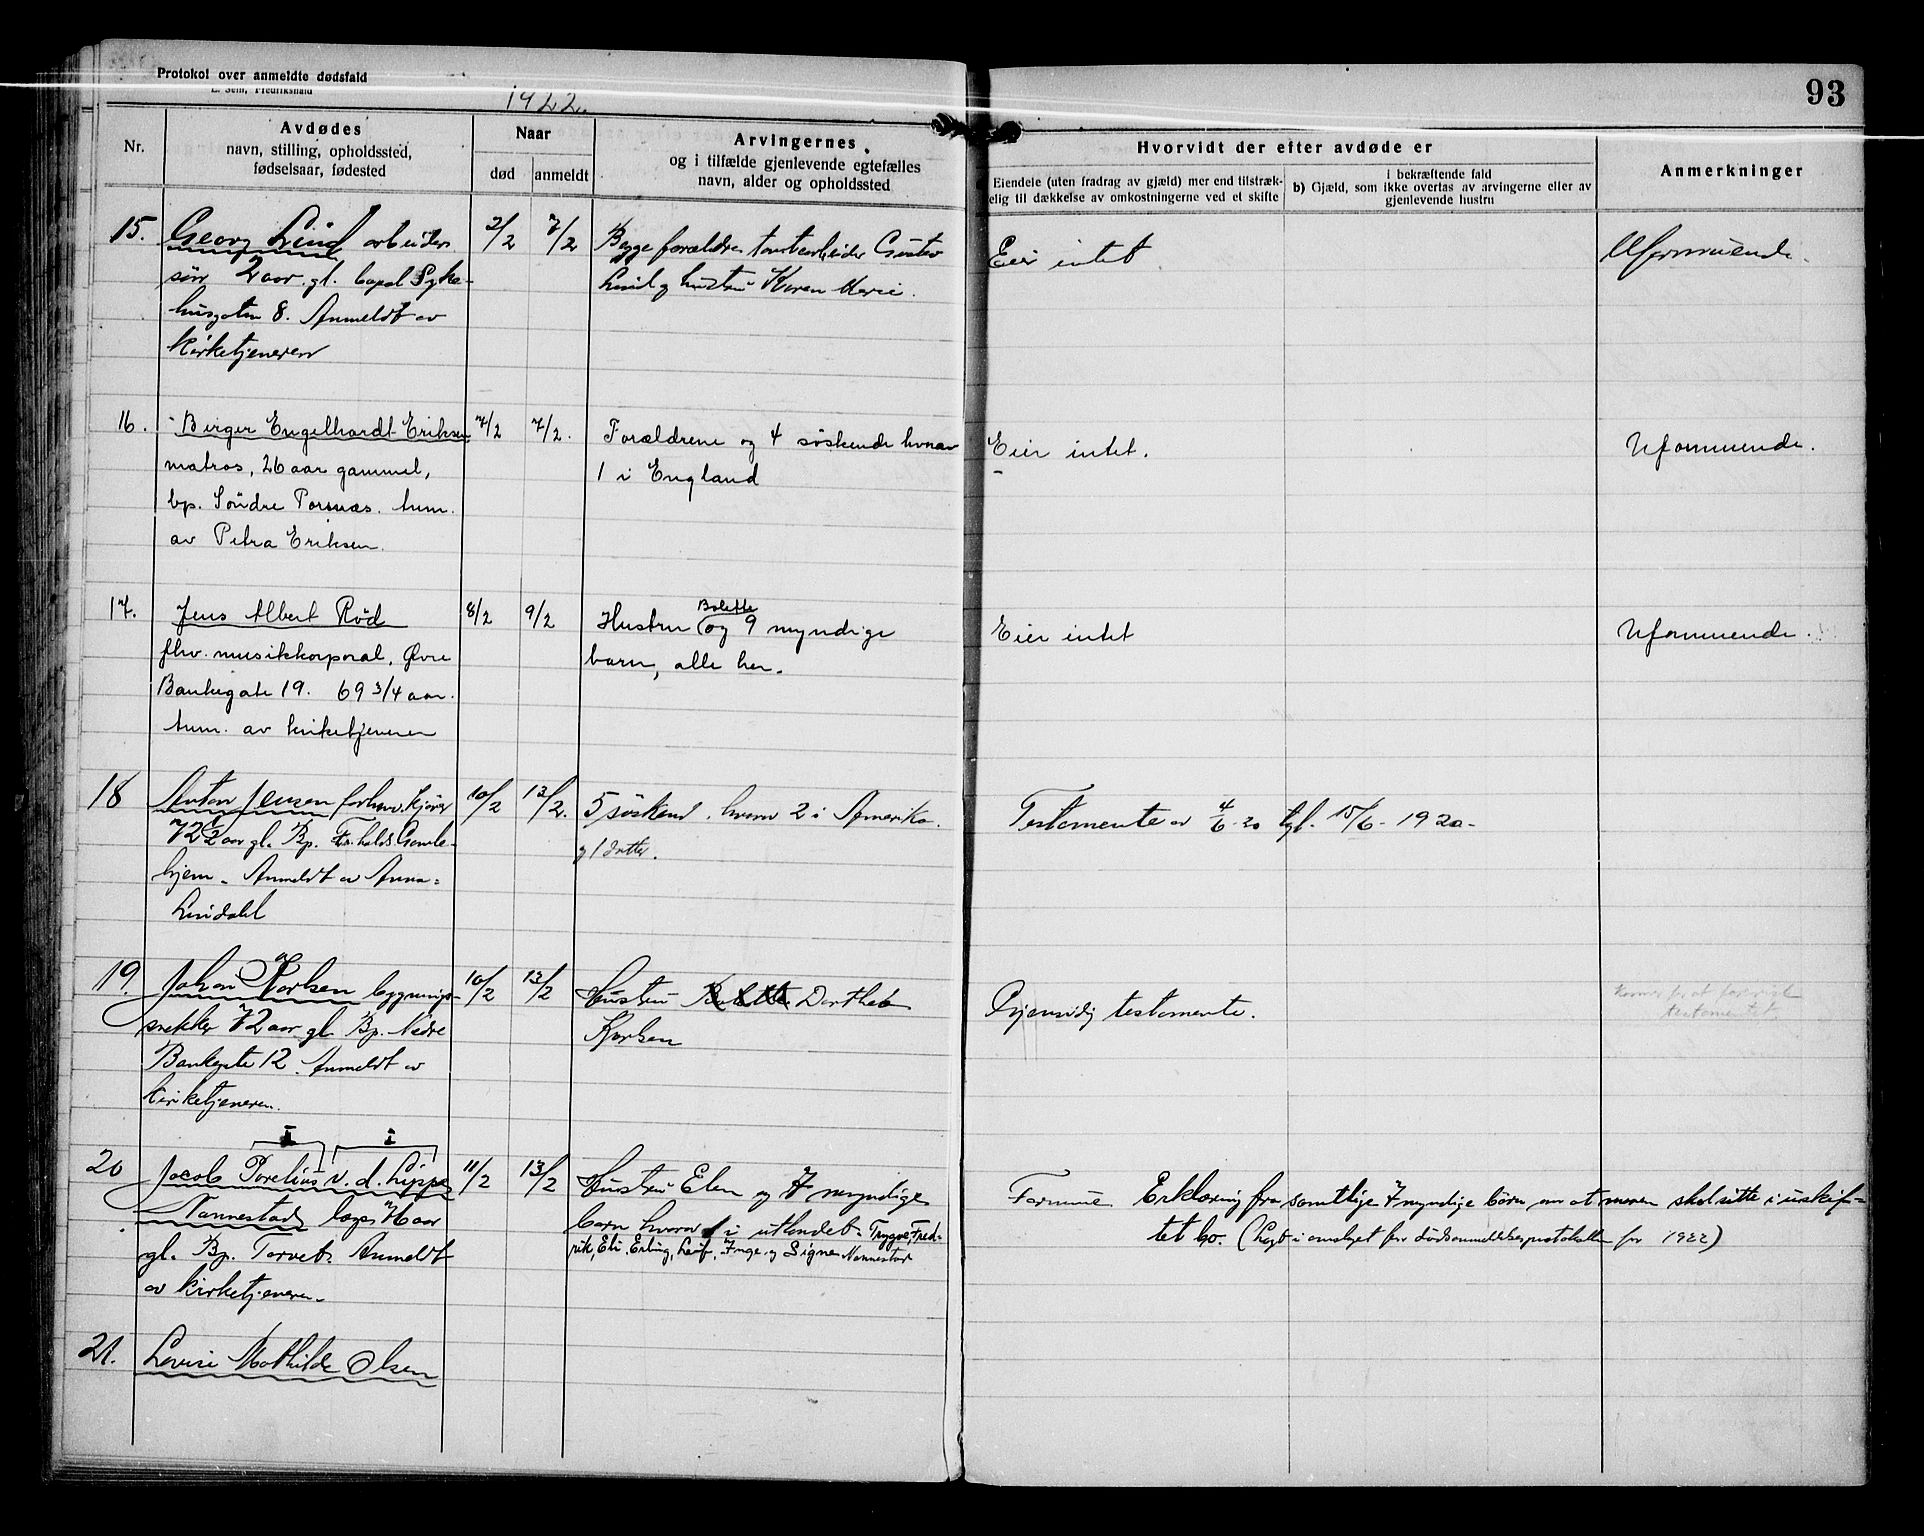 Protokol over anmeldte dødsfald
E. Sem, Fredrikshald
1922.
93
Nr.
Avdødes
navn, stilling, opholdssted,
fødselsaar, fødested
Naar
død
anmeldt
Arvingernes
og i tilfælde gjenlevende egtefælles
navn, alder og opholdssted
Hvorvidt der efter avdøde er
Eiendele (uten fradrag av gjæld) mer end tilstræk-
elig til dækkelse av omkostningerne ved et skifte
i bekræftende fald
b) Gjæld, som ikke overtas av arvingerne eller av
gjenlevende hustru
Anmerkninger
15. Georg Lind arbeider
søn 2 aar gl. bopæl Syke-
husgaten 8. Anmeldt av
kirketjeneren
2/2 7/2
Begge forældre tomtearbeider Gustav
Lind og hustru Karen Marie.
Eier intet
Uformuende.
16. Birger Engelhardt Eriksen
matros, 26 aar gammel,
bp. Søndre Torsnæs. Anm.
av Petra Eriksen.
7/2 7/2.
Forældrene og 4 søskende hvorav
1 i England
Eier intet.
Uformuende.
17. Jens Albert Rød
fhv. musikkorporal, Øvre
Bankegate 19. 69 3/4 aar.
Anm. av kirketjeneren
8/2 9/2
Hustru Bolette og 9 myndige
barn, alle her.
Eier intet
Uformuende.
18 Anton Jensen forhenv. kjører
72 1/2 aar gl. Bp. Fr.halds Gamle-
hjem. Anmeldt av Anna
Lindahl
10/2 13/2.
5 søskend, hvorav 2 i Amerika
og 1 datter.
Testamente av 4/6-20 tgl. 15/6-1920-
19. Johan Karlsen bygnings-
snekker 72 aar gl. Bp. Nedre
Bankegate 12. Anmeldt av
kirketjeneren.
10/2 13/2
Hustru Dorthea
Karlsen
Gjensidig testamente.
testamentet
20 Jacob Parelius v. d. Lippe
Nannestad læge
gl. Bp. Torvet. Anmeldt
av kirketjeneren.
11/2 13/2
Hustru Elen og 7 myndige
barn hvorav 1 i utlandet. Trygve, Fred-
rik, Eli, Erling, Leif, Inge og Signe Nannestad
Formue Erklæring fra samtlige 7 myndige børn om at moren skal sitte i uskif-
tet bo. (Lagt i omslaget for dødsanmeldelsesprotokollen for 1922)
21. Lovise Mathilde Olsen